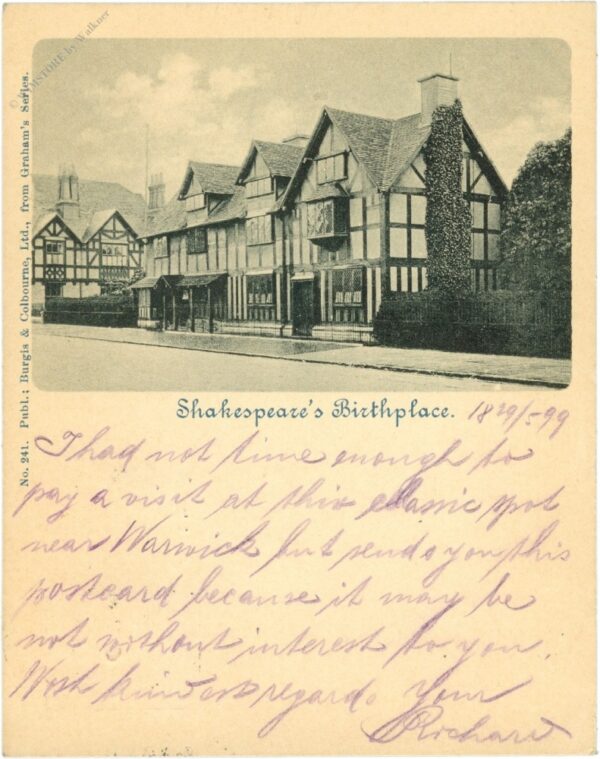 FILMSTORE by Walkner
No. 241. Publ.: Burgis & Colbourne, Ltd., from Graham's Series.
Shakespeare's Birthplace.
1829/5 99
I had not time enough to
pay a visit at this classic spot
near Warwick but send you this
postcard because it may be
not without interest to you.
With kindest regards Your
Richard